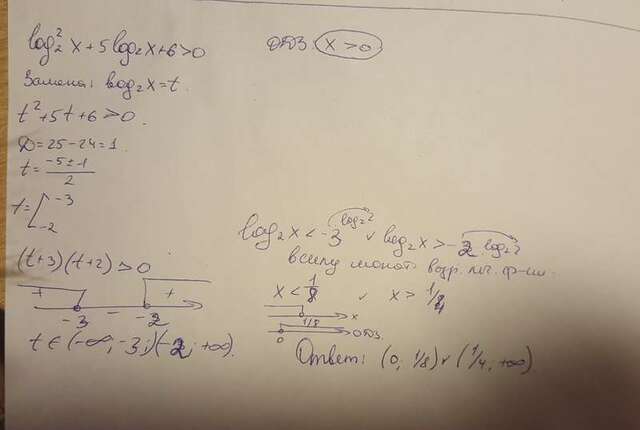 log₂² x + 5 log₂ x + 6 > 0
ОДЗ: x > 0
Замена: log₂ x = t.
t² + 5t + 6 > 0.
D = 25 - 24 = 1.
t = (-5 ± 1)/2
t = [ -3
-2
(t+3)(t+2) > 0
+ - +
-3 -2
t ∈ (-∞; -3) (-2; +∞).
log₂ x < -3 log₂ 2 ∨ log₂ x > -2 · log₂ 2
в силу монот. возр. лог. ф-ии.
x < 1/8 ∨ x > 1/4
1/8 x
0 ОДЗ.
Ответ: (0; 1/8) ∨ (1/4; +∞)